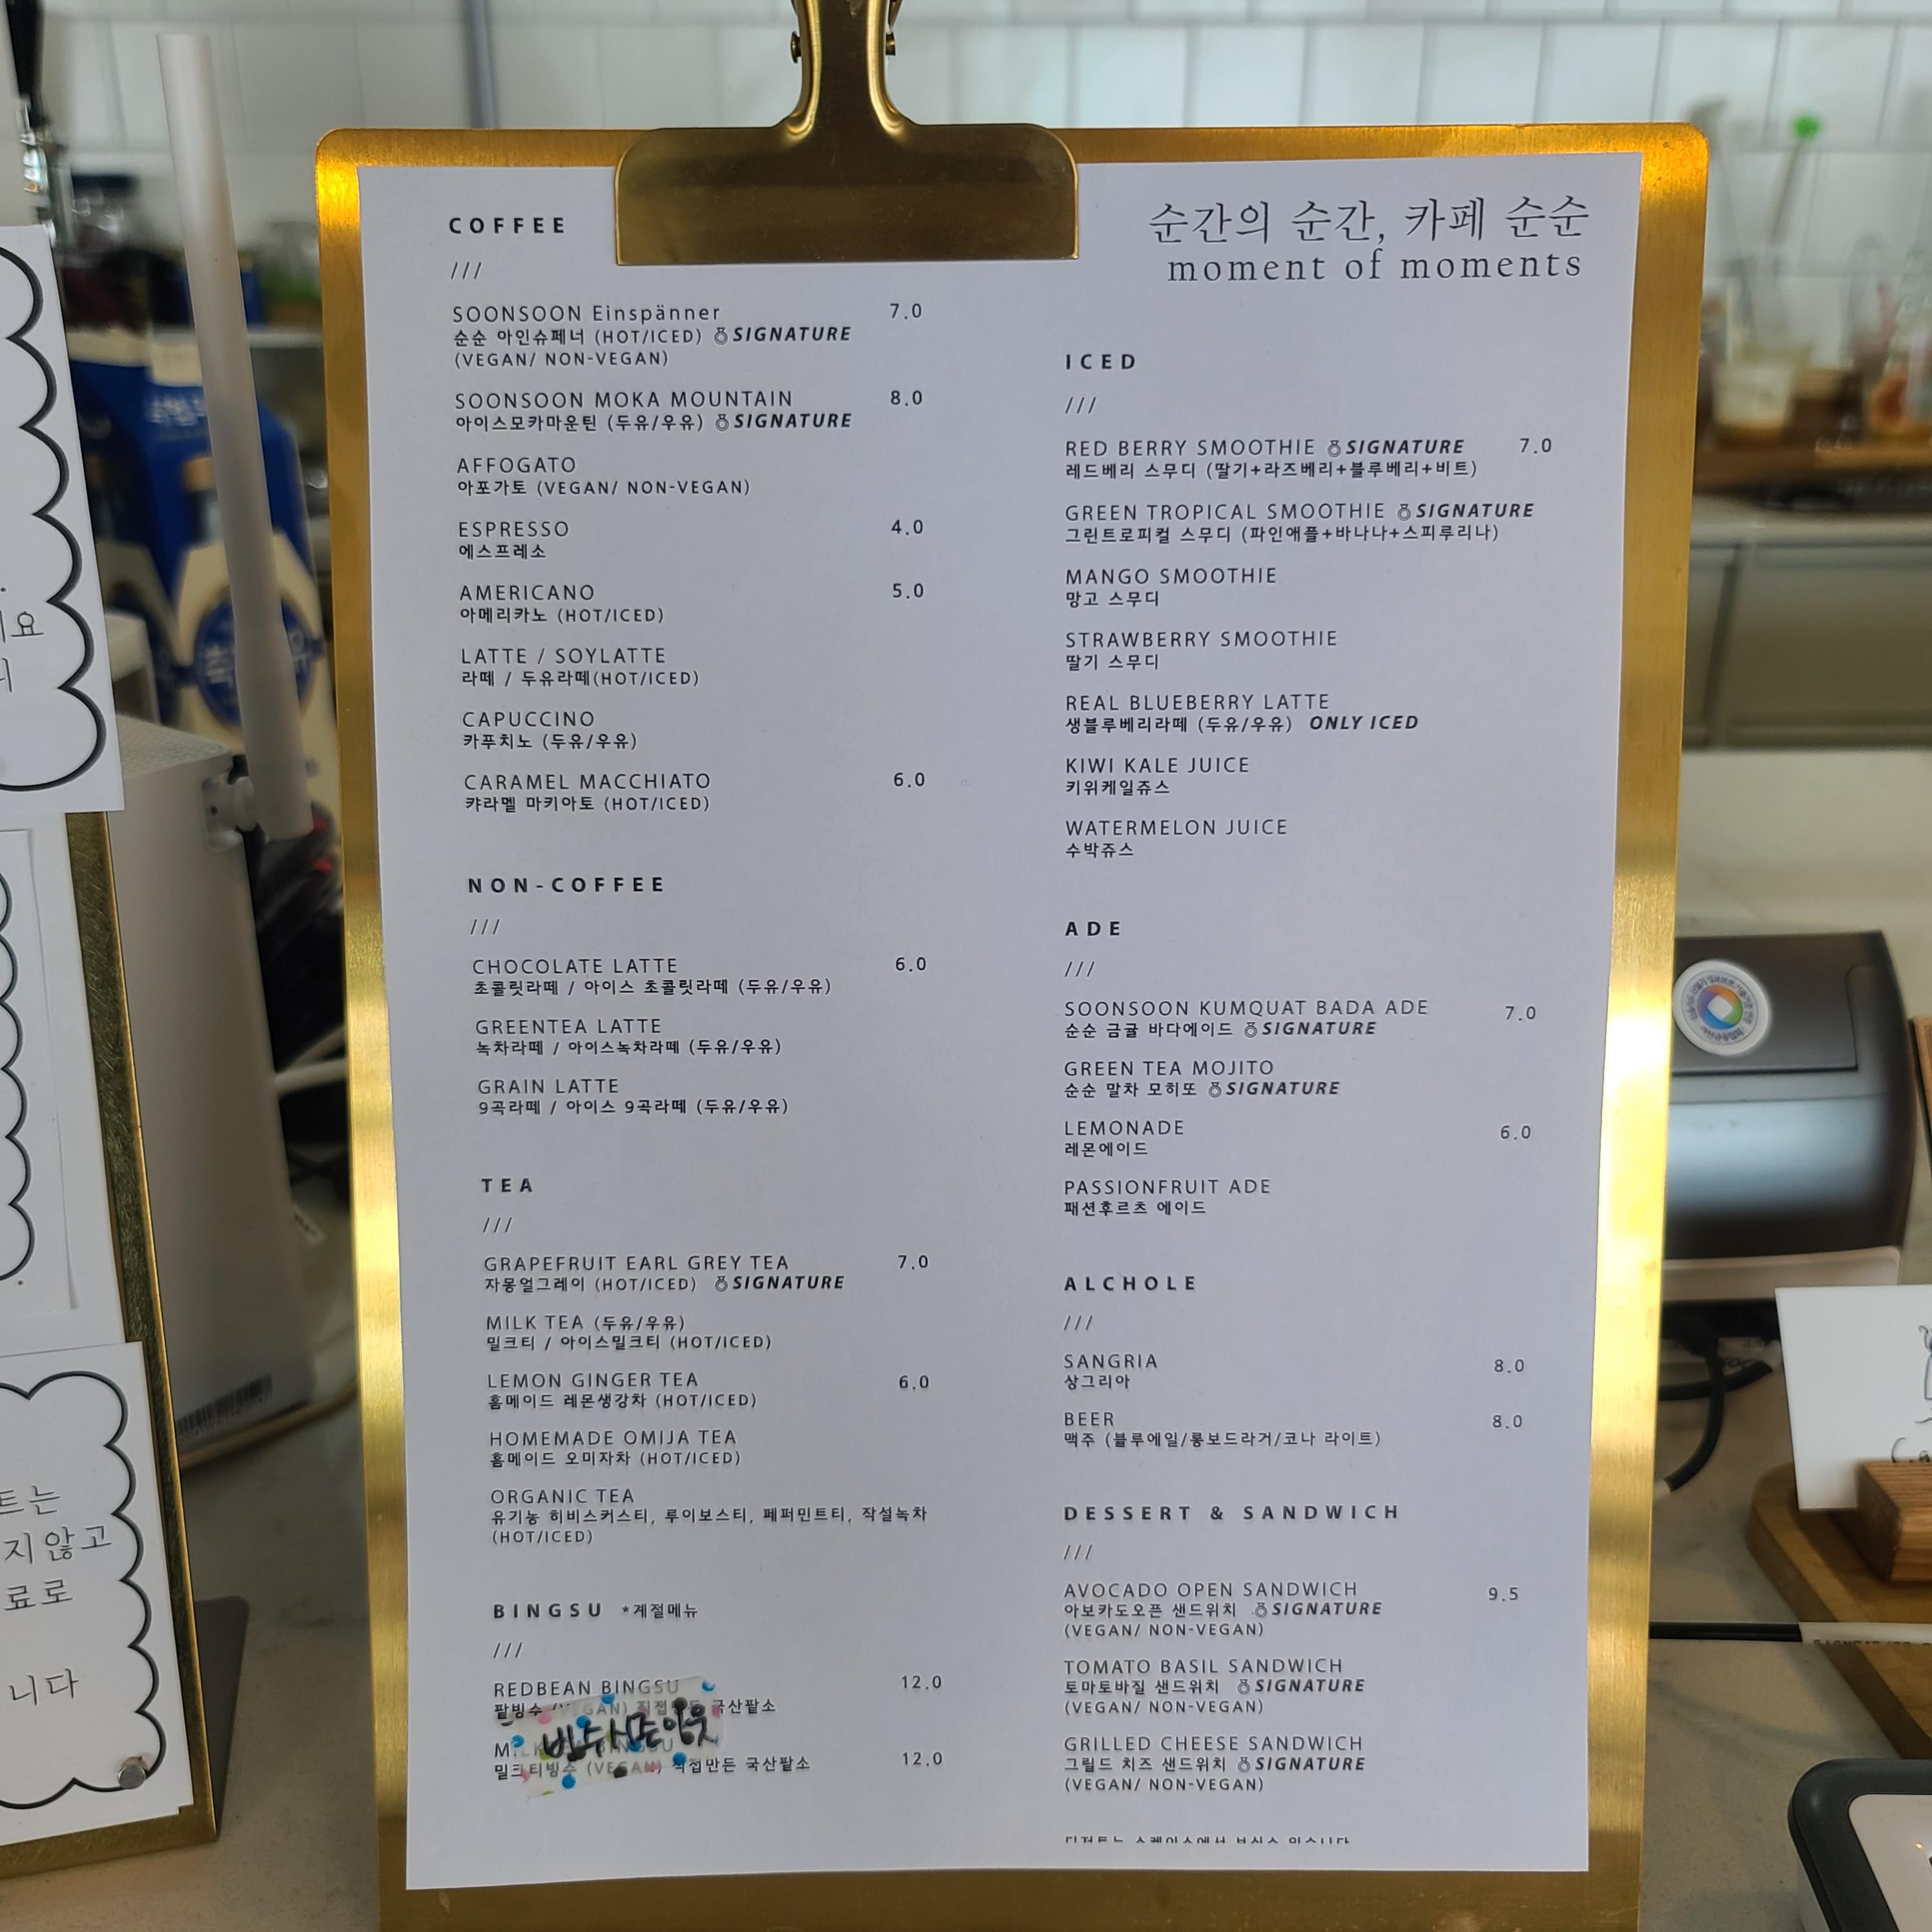 COFFEE
///
SOONSOON Einspänner 7.0
순순 아인슈페너 (HOT/ICED) SIGNATURE
(VEGAN/ NON-VEGAN)
SOONSOON MOKA MOUNTAIN 8.0
아이스모카마운틴 (두유/우유) SIGNATURE
AFFOGATO
아포가토 (VEGAN/ NON-VEGAN)
ESPRESSO 4.0
에스프레소
AMERICANO 5.0
아메리카노 (HOT/ICED)
LATTE / SOYLATTE
라떼 / 두유라떼(HOT/ICED)
CAPUCCINO
카푸치노 (두유/우유)
CARAMEL MACCHIATO 6.0
캬라멜 마키아토 (HOT/ICED)
NON-COFFEE
///
CHOCOLATE LATTE 6.0
초콜릿라떼 / 아이스 초콜릿라떼 (두유/우유)
GREENTEA LATTE
녹차라떼 / 아이스녹차라떼 (두유/우유)
GRAIN LATTE
9곡라떼 / 아이스 9곡라떼 (두유/우유)
TEA
///
GRAPEFRUIT EARL GREY TEA 7.0
자몽얼그레이 (HOT/ICED) SIGNATURE
MILK TEA (두유/우유)
밀크티 / 아이스밀크티 (HOT/ICED)
LEMON GINGER TEA 6.0
홈메이드 레몬생강차 (HOT/ICED)
HOMEMADE OMIJA TEA
홈메이드 오미자차 (HOT/ICED)
ORGANIC TEA
유기농 히비스커스티, 루이보스티, 페퍼민트티, 작설녹차
(HOT/ICED)
BINGSU *계절메뉴
///
REDBEAN BINGSU 12.0
팥빙수 (VEGAN) 직접만든 국산팥소
빙수시즌아웃
BINGSU 12.0
밀크티빙수 (VEGAN) 직접만든 국산팥소
순간의 순간, 카페 순순
moment of moments
ICED
///
RED BERRY SMOOTHIE SIGNATURE 7.0
레드베리 스무디 (딸기+라즈베리+블루베리+비트)
GREEN TROPICAL SMOOTHIE SIGNATURE
그린트로피컬 스무디 (파인애플+바나나+스피루리나)
MANGO SMOOTHIE
망고 스무디
STRAWBERRY SMOOTHIE
딸기 스무디
REAL BLUEBERRY LATTE
생블루베리라떼 (두유/우유) ONLY ICED
KIWI KALE JUICE
키위케일쥬스
WATERMELON JUICE
수박쥬스
ADE
///
SOONSOON KUMQUAT BADA ADE 7.0
순순 금귤 바다에이드 SIGNATURE
GREEN TEA MOJITO
순순 말차 모히또 SIGNATURE
LEMONADE 6.0
레몬에이드
PASSIONFRUIT ADE
패션후르츠 에이드
ALCHOLE
///
SANGRIA 8.0
상그리아
BEER 8.0
맥주 (블루에일/롱보드라거/코나 라이트)
DESSERT & SANDWICH
///
AVOCADO OPEN SANDWICH 9.5
아보카도오픈 샌드위치 SIGNATURE
(VEGAN/ NON-VEGAN)
TOMATO BASIL SANDWICH
토마토바질 샌드위치 SIGNATURE
(VEGAN/ NON-VEGAN)
GRILLED CHEESE SANDWICH
그릴드 치즈 샌드위치 SIGNATURE
(VEGAN/ NON-VEGAN)
트는
지않고
료로
니다